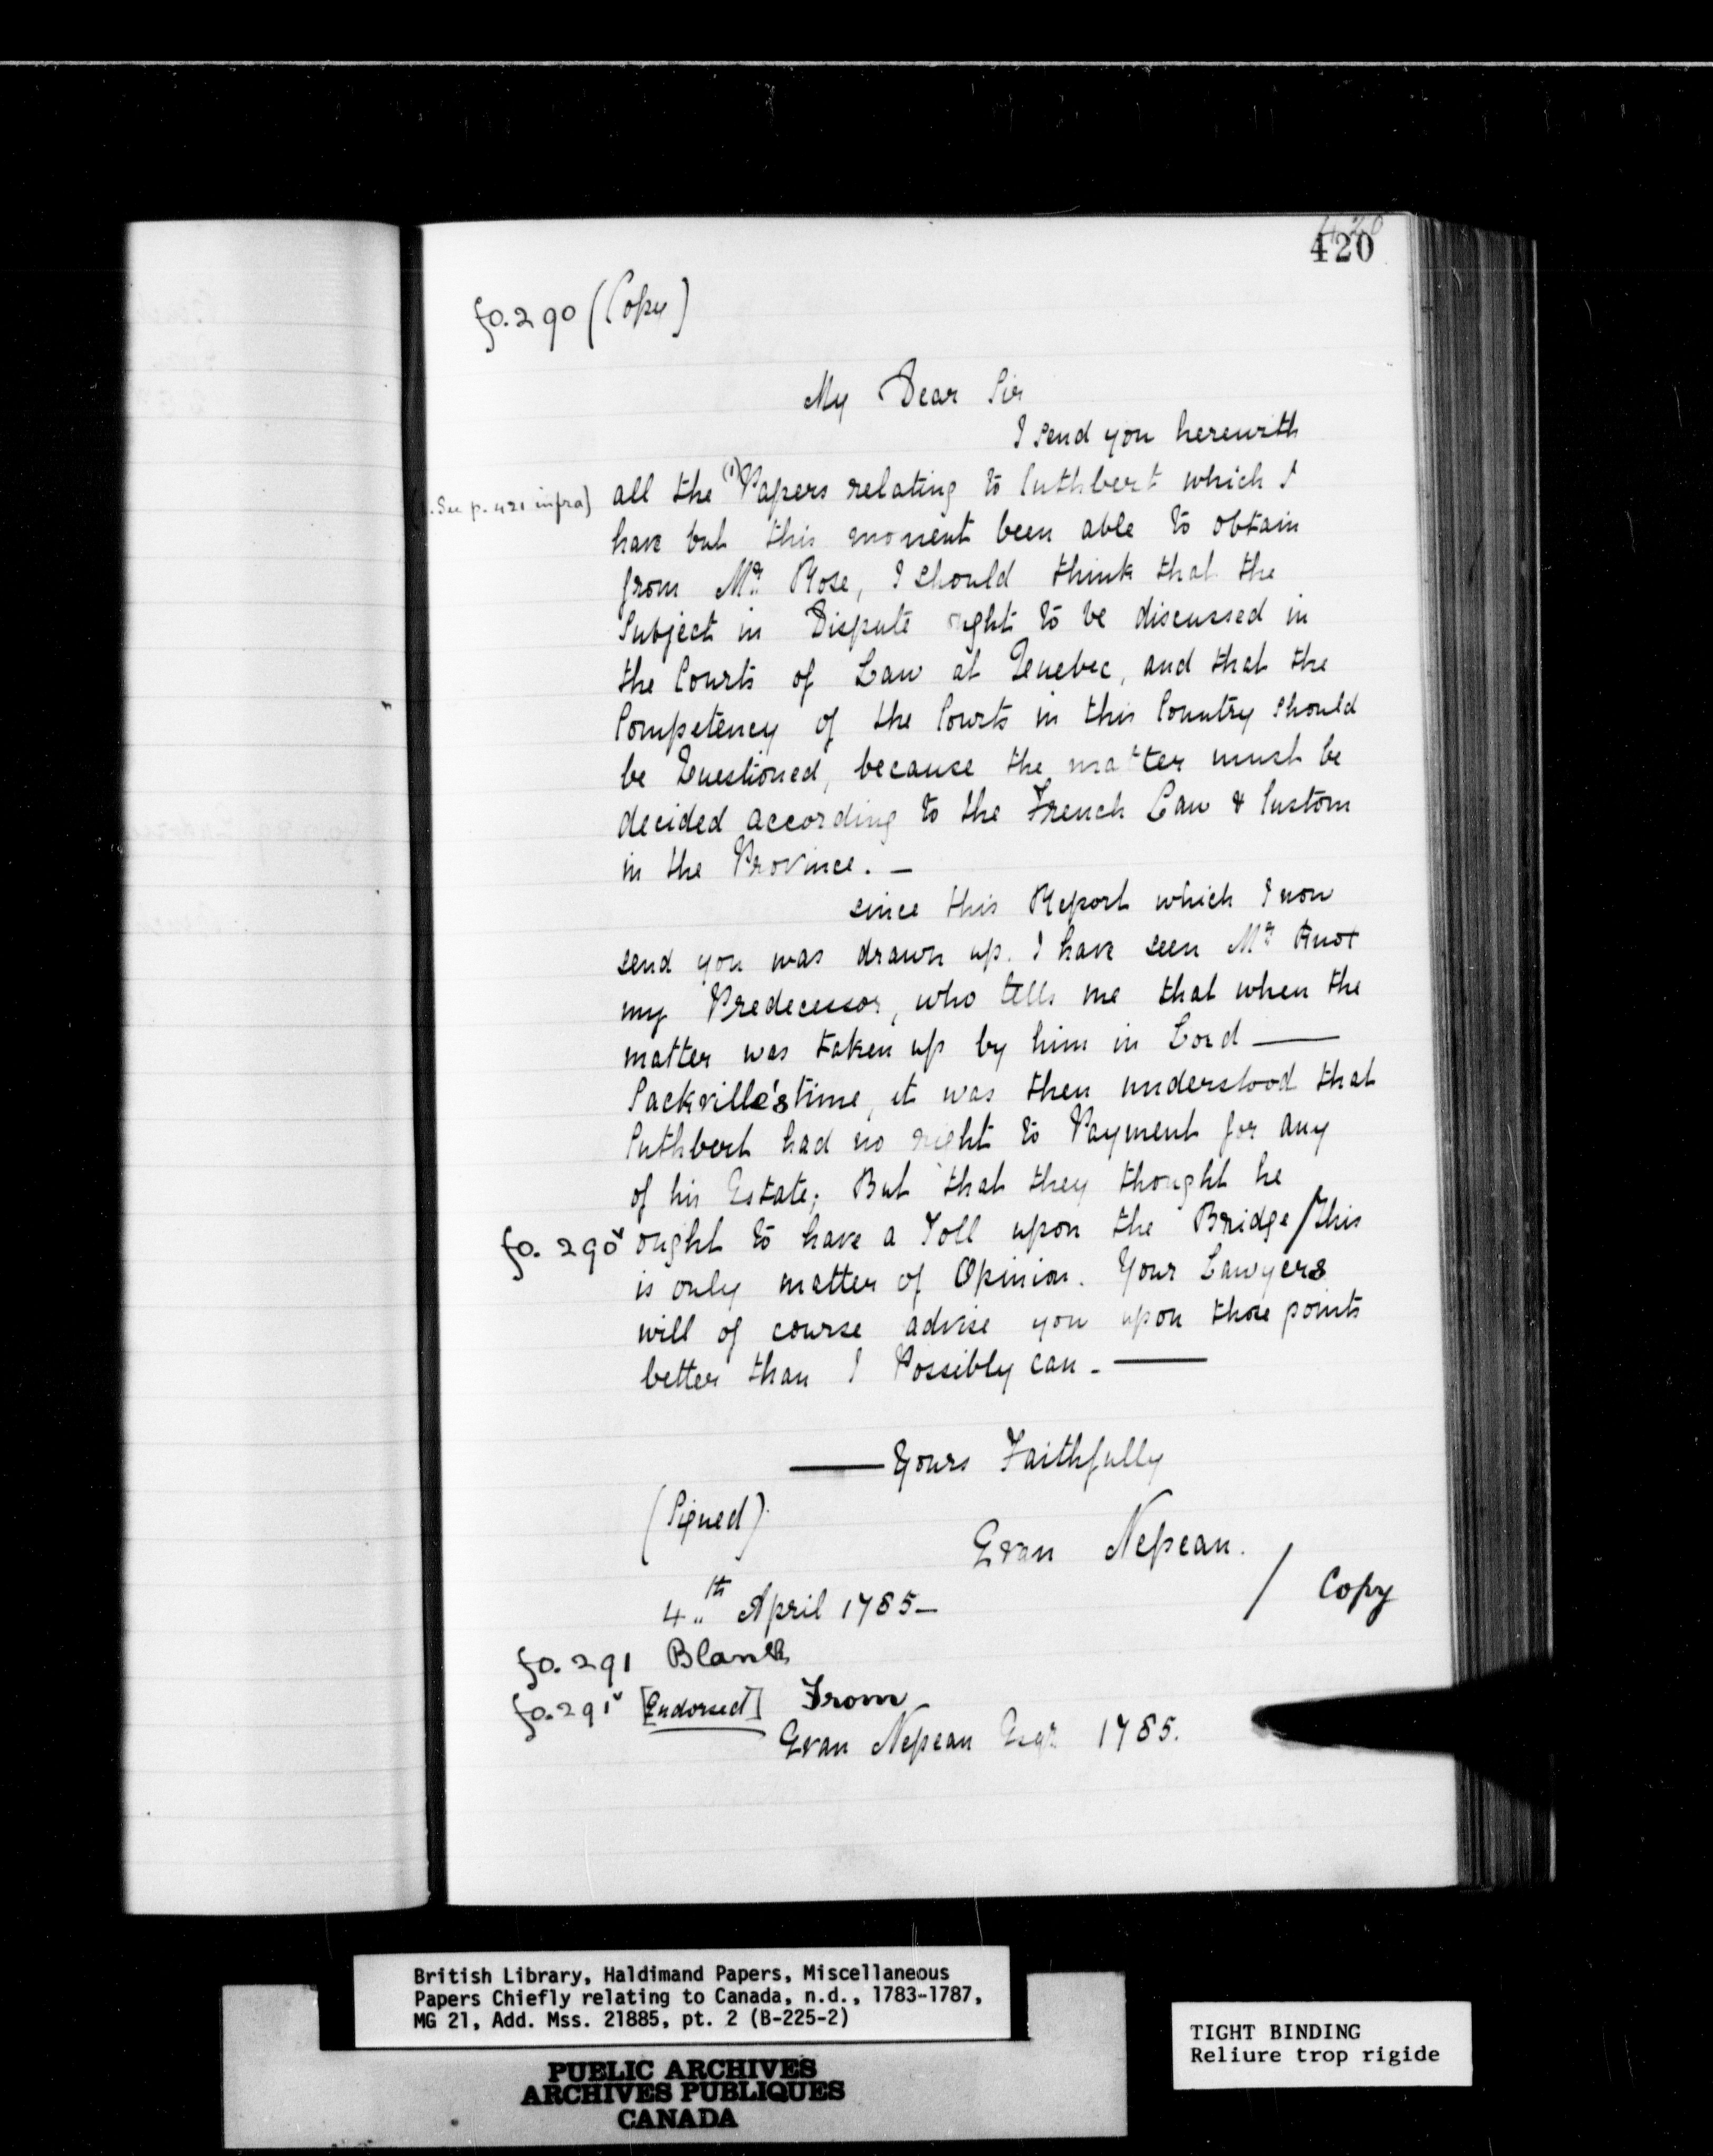 420
420
fo. 290 (Copy)
My Dear Sir
I send you herewith
all the (1) Papers relating to Cuthbert which I
See p. 421 infra]
have but this moment been able to obtain
from Mr. Rose, I should think that the
Subject in Dispute ought to be discussed in
the Courts of Law at Quebec, and that the
Competency of the Courts in this Country should
be Questioned, because the matter must be
decided according to the French Law & Custom
in the Province. —
since this Report which I now
send you was drawn up. I have seen Mr Knox
my Predecessor, who tells me that when the
matter was taken up by him in Lord —
Sackville's time, it was then understood that
Cuthbert had no right to Payment for any
of his Estate; But that they thought he
fo. 290v ought to have a Toll upon the Bridge / this
is only matter of Opinion. Your Lawyers
will of course advise you upon those points
better than I Possibly can. —
— Yours Faithfully
(Signed)
Evan Nepean.
4th April 1785 —
/ Copy
fo. 291 Blank
fo. 291v [Endorsed] From
Evan Nepean Esqr 1785.
British Library, Haldimand Papers, Miscellaneous
Papers Chiefly relating to Canada, n.d., 1783-1787,
MG 21, Add. Mss. 21885, pt. 2 (B-225-2)
PUBLIC ARCHIVES
ARCHIVES PUBLIQUES
CANADA
TIGHT BINDING
Reliure trop rigide